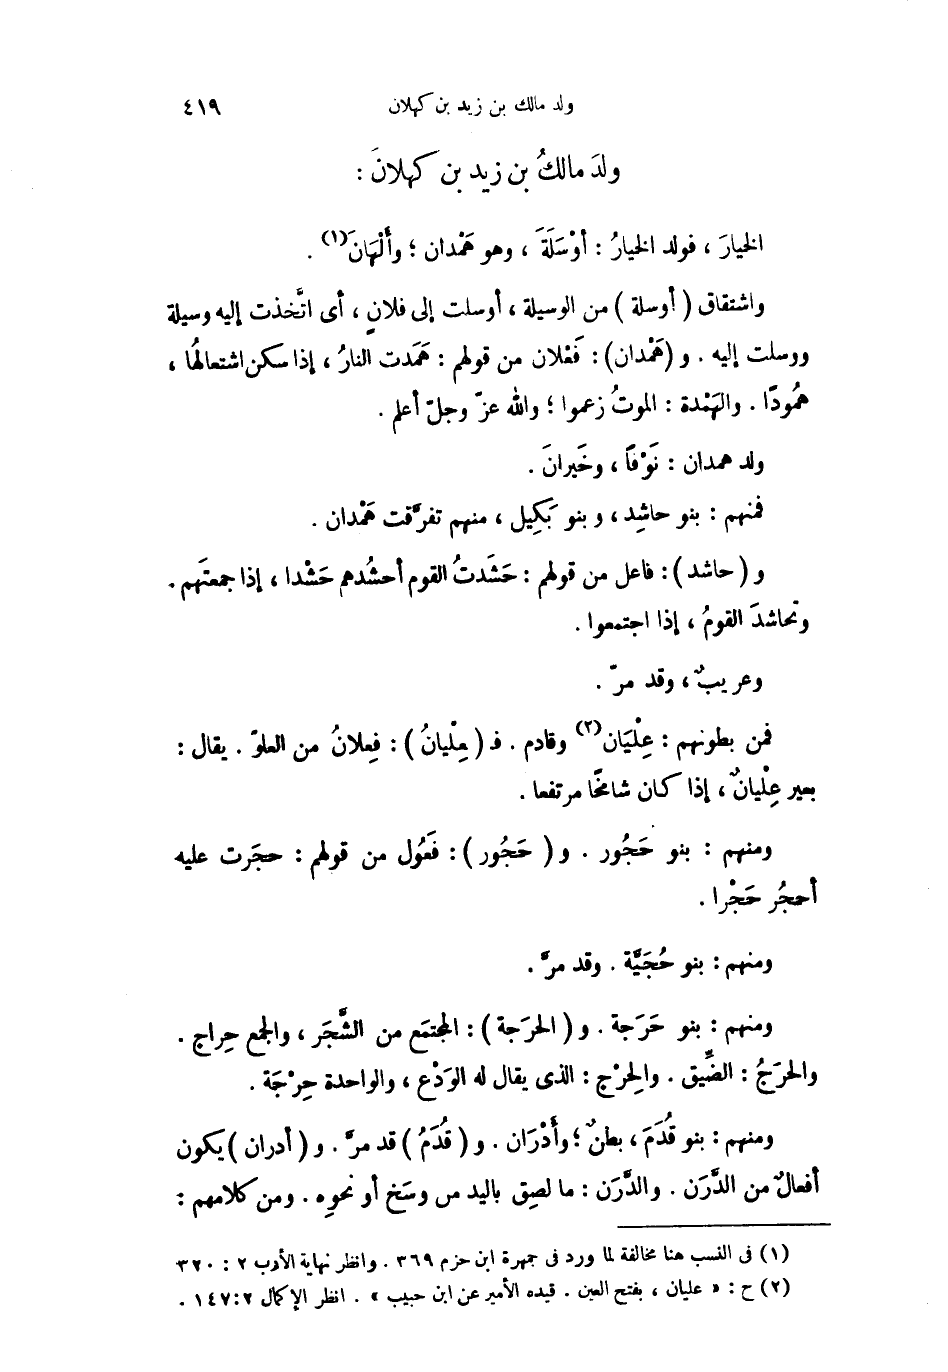 ولد مالك بن زيد بن كهلان ٤١٩
ولدَ مالكُ بن زيد بن كهلانَ :
الخيارَ ، فولد الخيارُ : أوْسَلَةَ ، وهو هَمْدان ؛ وأَلْهَانَ(١) .
واشتقاق ( أوسلة ) من الوسيلة ، أوسلت إلى فلانٍ ، أى اتَّخذت إليه وسيلة
ووسلت إليه . و ( هَمْدان ) : فَعْلان من قولهم : هَمَدت النارُ ، إذا سكن اشتعالهُا ،
هُمُودًا . والهَمْدة : الموتُ زعموا ؛ والله عزّ وجلّ أعلم .
ولد همدان : نَوْفاً ، وخَيرانَ .
فمنهم : بنو حاشِد ، و بنو بَكِيل ، منهم تفرَّقت هَمْدان .
و ( حاشد ) : فاعل من قولهم : حَشَدتُ القوم أحشُدهم حَشْدا ، إذا جمعتَهم .
وتحاشدَ القومُ ، إذا اجتمعوا .
وعريبٌ ، وقد مرّ .
فمن بطونهم : عِلْيَان(٢) وقادم . فـ ( عِلْيانُ ) : فِعلانُ من العلوّ . يقال :
بعير عِلْيانٌ ، إذا كان شامخًا مرتفعا .
ومنهم : بنو حَجُور . و ( حَجُور ) : فَعُول من قولهم : حجَرت عليه
أحجُر حَجْرا .
ومنهم : بنو حُجَيَّة . وقد مرَّ .
ومنهم : بنو حَرَجة . و ( الحرَجة ) : المجتمَع من الشَّجَر ، والجمع حِراج .
والحرَجُ : الضِّيق . والحِرْج : الذى يقال له الوَدْع ، والواحدة حِرْجَة .
ومنهم : بنو قُدَمَ ، بطنٌ ؛ وأَدْرَان . و ( قُدَمُ ) قد مرَّ . و ( أدران ) يكون
أفعالٌ من الدَّرَن . والدَّرَن : ما لصِق باليد من وسَخ أو نحوِه . ومن كلامهم :
(١) فى النسب هنا مخالفة لما ورد فى جمهرة ابن حزم ٣٦٩ . وانظر نهاية الأدب ٢ : ٣٢٠
(٢) ح : « عليان ، بفتح العين . قيده الأمير عن ابن حبيب » . انظر الإكمال ٢:١٤٧ .